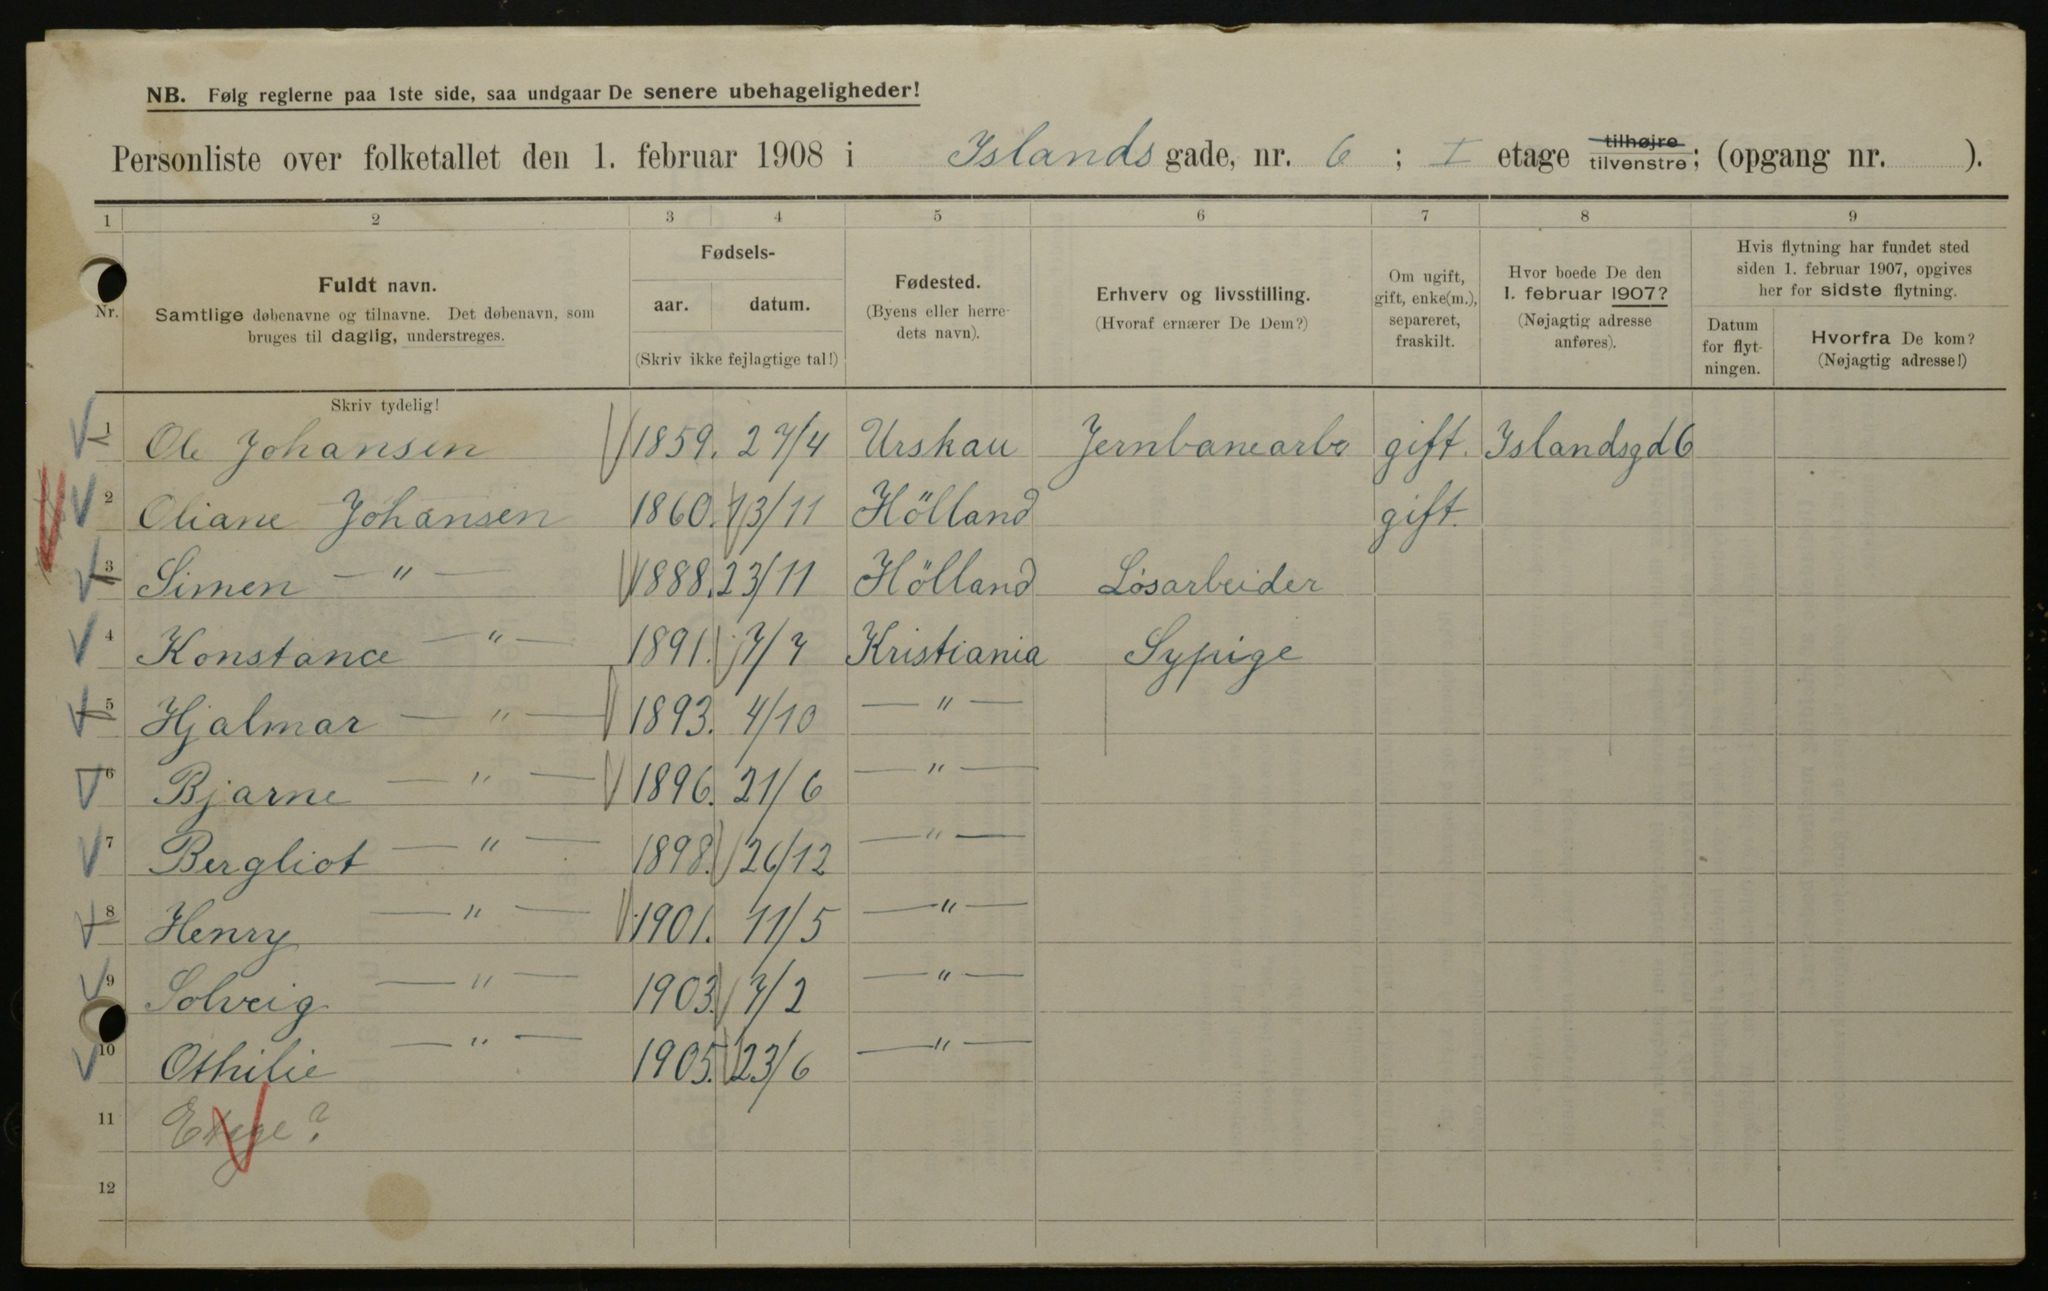 NB. Følg reglerne paa 1ste side, saa undgaar De senere ubehageligheder!
Personliste over folketallet den 1. februar 1908 i Islands gade, nr. 6 ; I etage tilhøjre tilvenstre; (opgang nr. ).
1 2 3 4 5 6 7 8 9
Nr.
Fuldt navn.
Samtlige døbenavne og tilnavne. Det døbenavn, som
bruges til daglig, understreges.
Skriv tydelig!
Fødsels-
aar. datum.
(Skriv ikke fejlagtige tal!)
Fødested.
(Byens eller herre-
dets navn).
Erhverv og livsstilling.
(Hvoraf ernærer De Dem?)
Om ugift,
gift, enke(m.),
separeret,
fraskilt.
Hvor boede De den
1. februar 1907?
(Nøjagtig adresse
anføres).
Hvis flytning har fundet sted
siden 1. februar 1907, opgives
her for sidste flytning.
Datum
for flyt-
ningen.
Hvorfra De kom?
(Nøjagtig adresse!)
1 Ole Johansen 1859. 27/4 Urskau Jernbanearbe gift. Islandsgd 6
2 Oliane Johansen 1860. 13/11 Hölland gift.
3 Simen — " — 1888. 23/11 Hölland Løsarbeider
4 Konstance — " — 1891. 7/7 Kristiania Sypige
5 Hjalmar — " — 1893. 4/10 — " —
6 Bjarne — " — 1896. 21/6 — " —
7 Bergliot — " — 1898. 26/12 — " —
8 Henry — " — 1901. 11/5 — " —
9 Solveig — " — 1903. 7/2 — " —
10 Othilie — " — 1905. 23/6 — " —
11
12